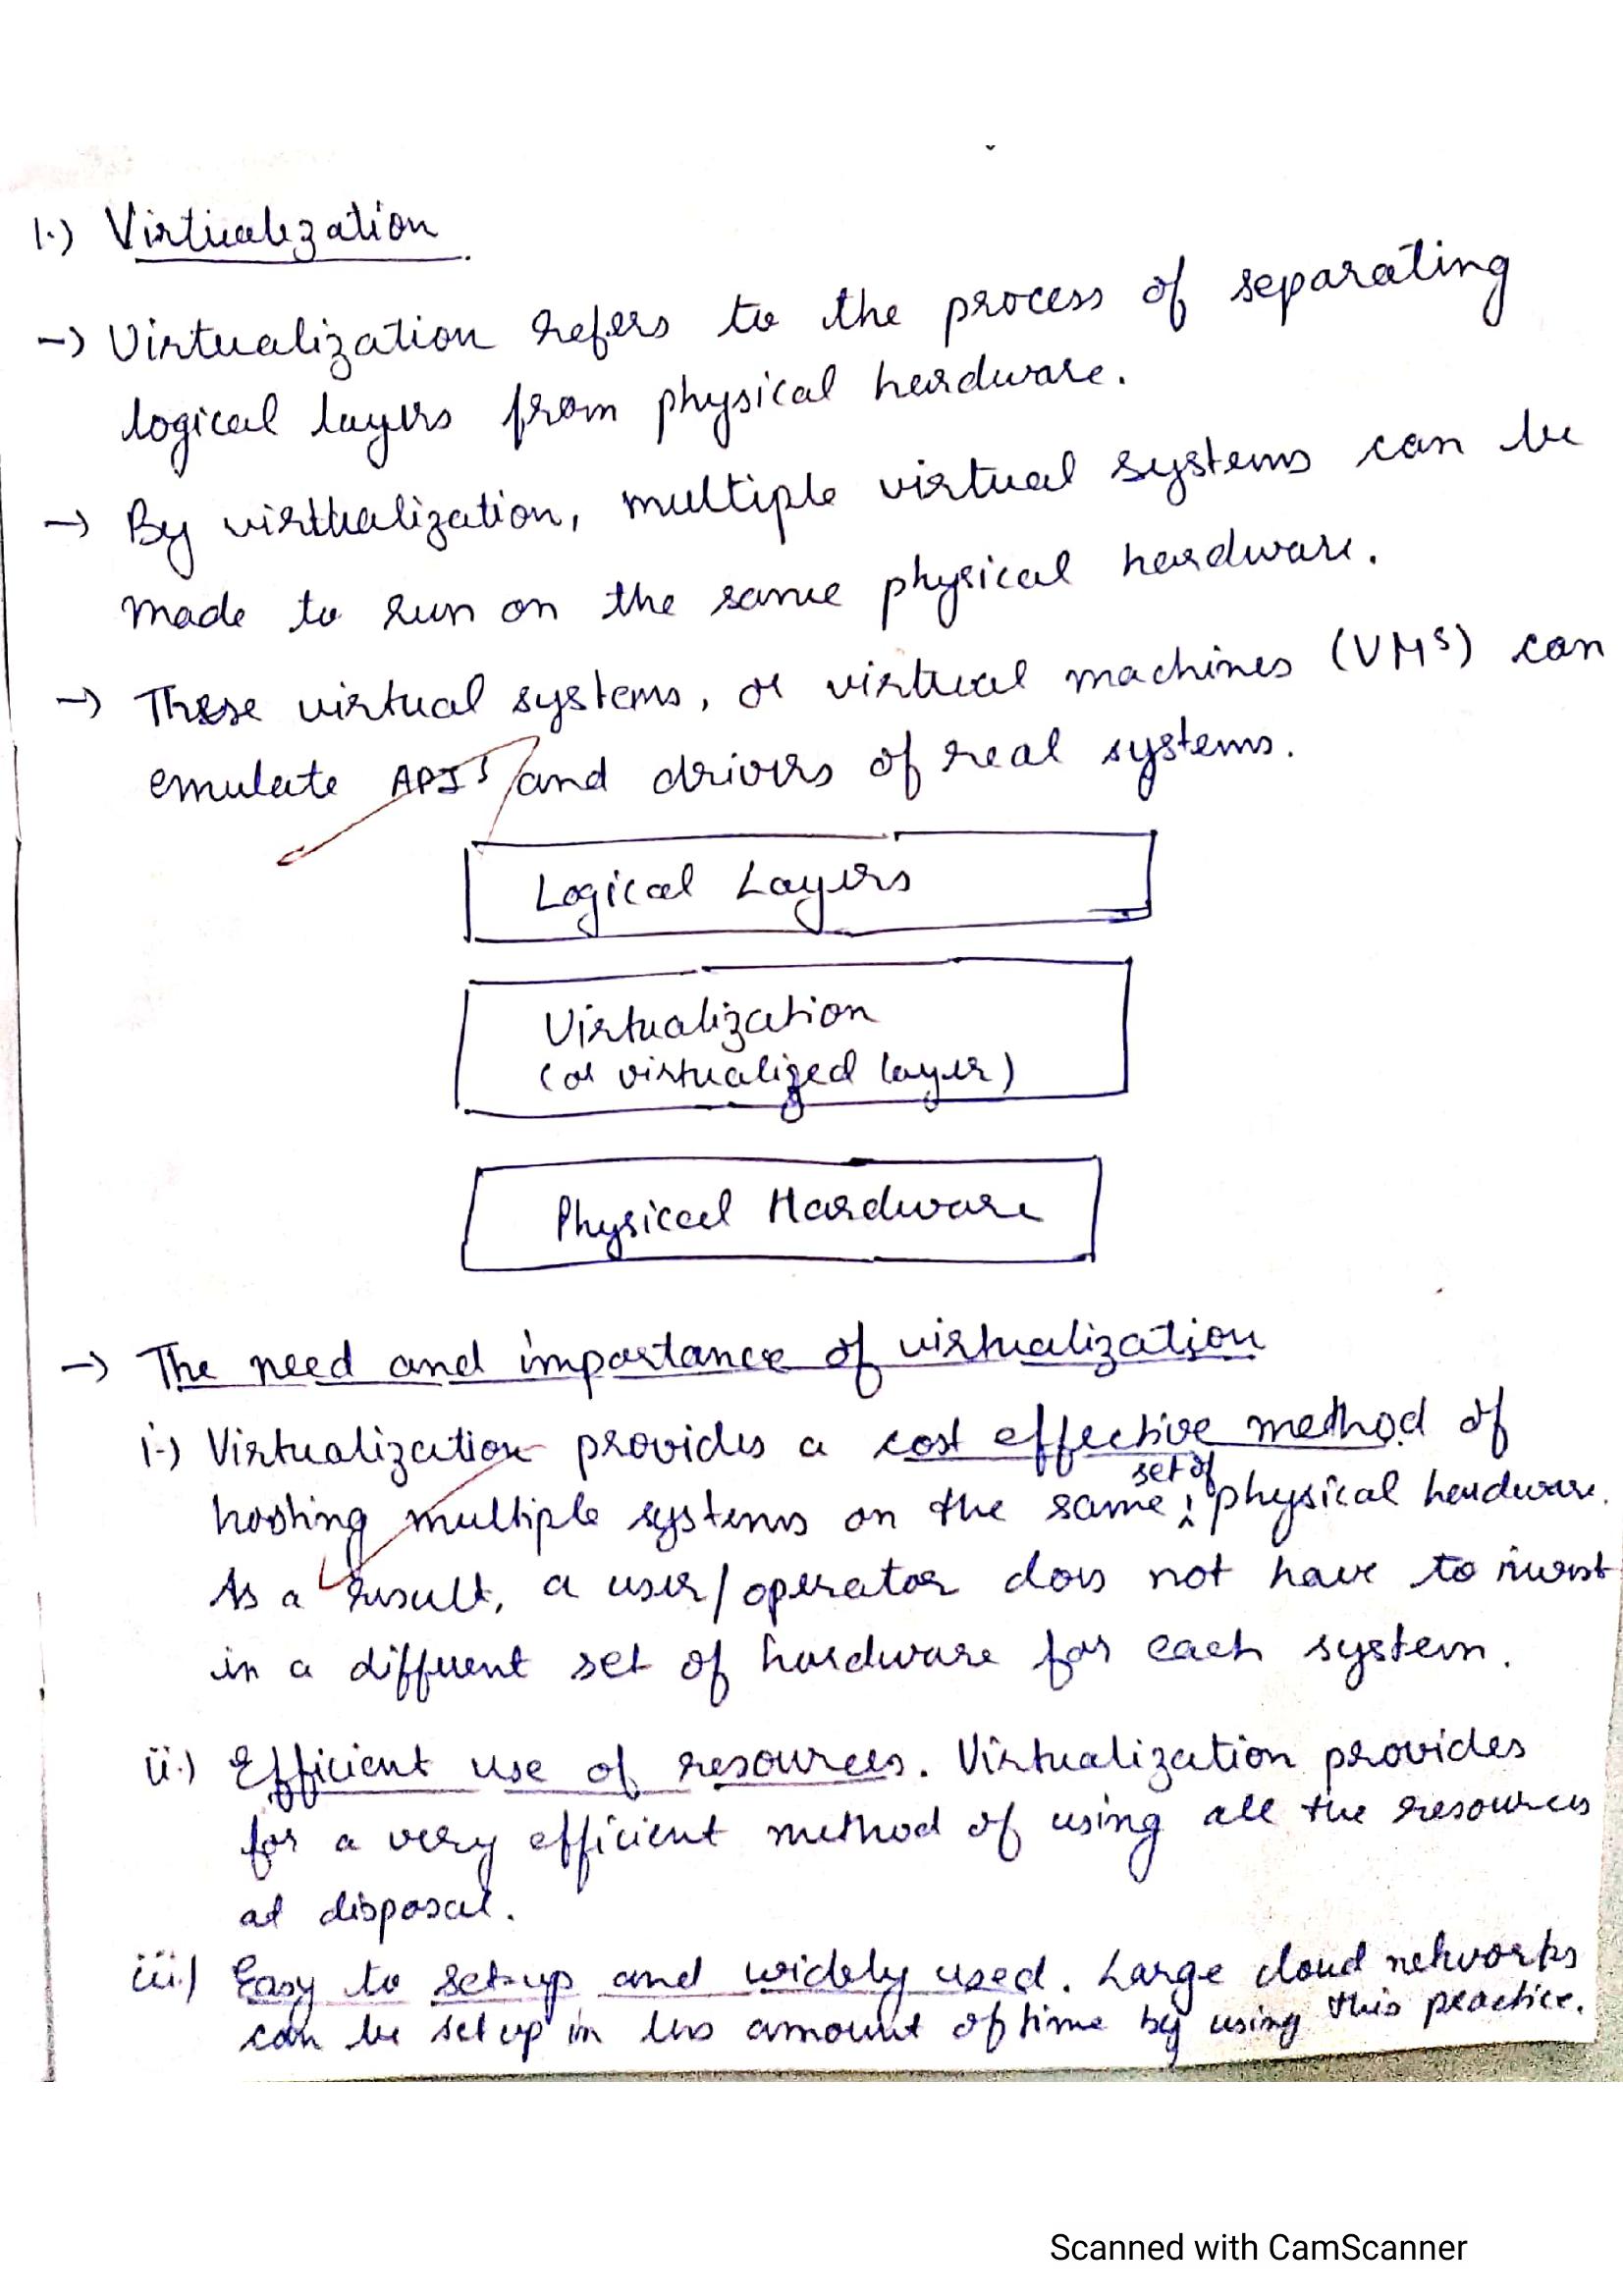 1.) Virtualization
→ Virtualization refers to the process of separating
logical layers from physical hardware.
→ By virtualization, multiple virtual systems can be
made to run on the same physical hardware.
→ These virtual systems, or virtual machines (VMs) can
emulate APIs and drivers of real systems.
Logical Layers
Virtualization
(or virtualized layer)
Physical Hardware
→ The need and importance of virtualization
i.) Virtualization provides a cost effective method of
hosting multiple systems on the same set of physical hardware.
As a result, a user/operator does not have to invest
in a different set of hardware for each system.
ii.) Efficient use of resources. Virtualization provides
for a very efficient method of using all the resources
at disposal.
iii.) Easy to set-up and widely used. Large cloud networks
can be set up in less amount of time by using this practice.
Scanned with CamScanner